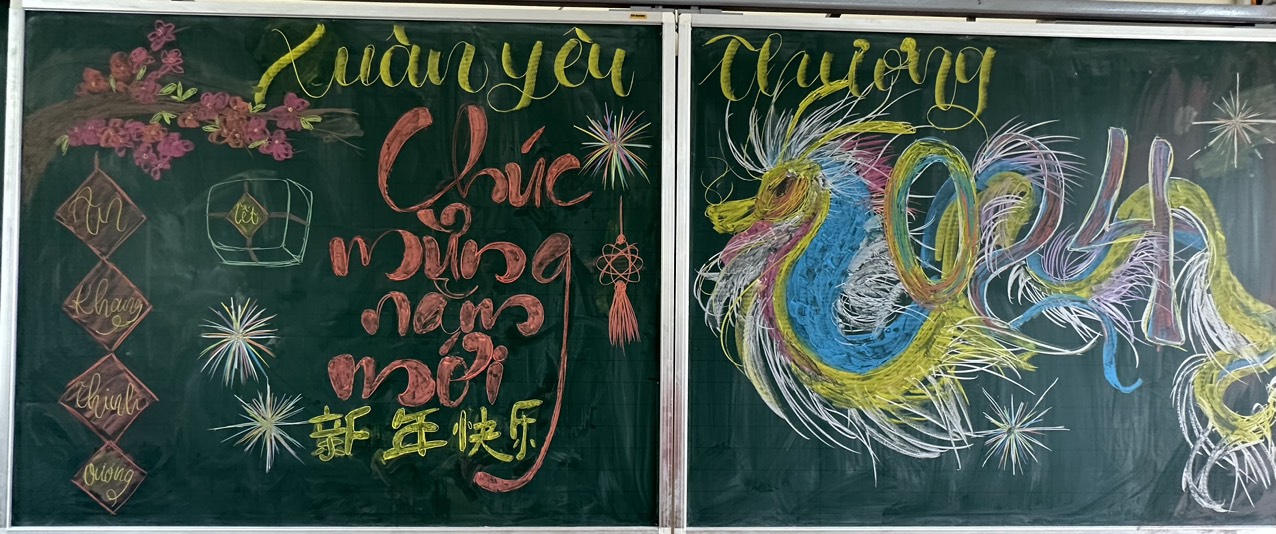 Xuân yêu Thương
An
Khang
thịnh
vượng
tết
Chúc
mừng
năm
mới
新年快乐
2024